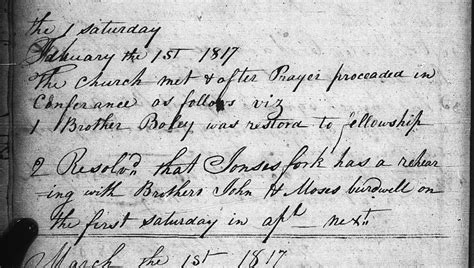 the 1 saturday
January the 1st 1817
The church met & after Prayer proceaded in
Conferance as follows viz
1 Brother Boley was restord to fellowship
2 Resolvd that Jonses fork has a rehear
ing with Brothers John H Moses burdwell on
the first saturday in apl next
March the 1st 1817